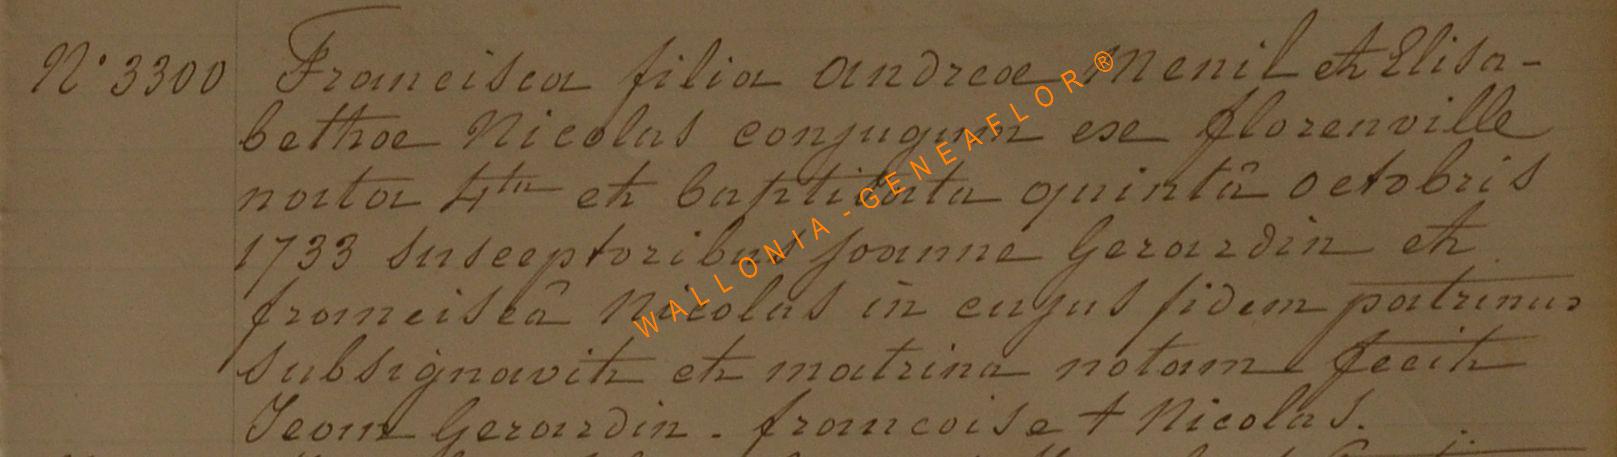 N° 3300 Francisca filia Andreae Menil et Elisa-
bethae Nicolas conjugum ex florenville
nata 4ta et baptisata quintâ octobris
1733 susceptoribus joanne Gerardin et
franciscâ Nicolas in cujus fidem patrinus
subsignavit et matrina notam fecit
Jean Gerardin . francoise + Nicolas.
WALLONIA-GENEAFLOR®